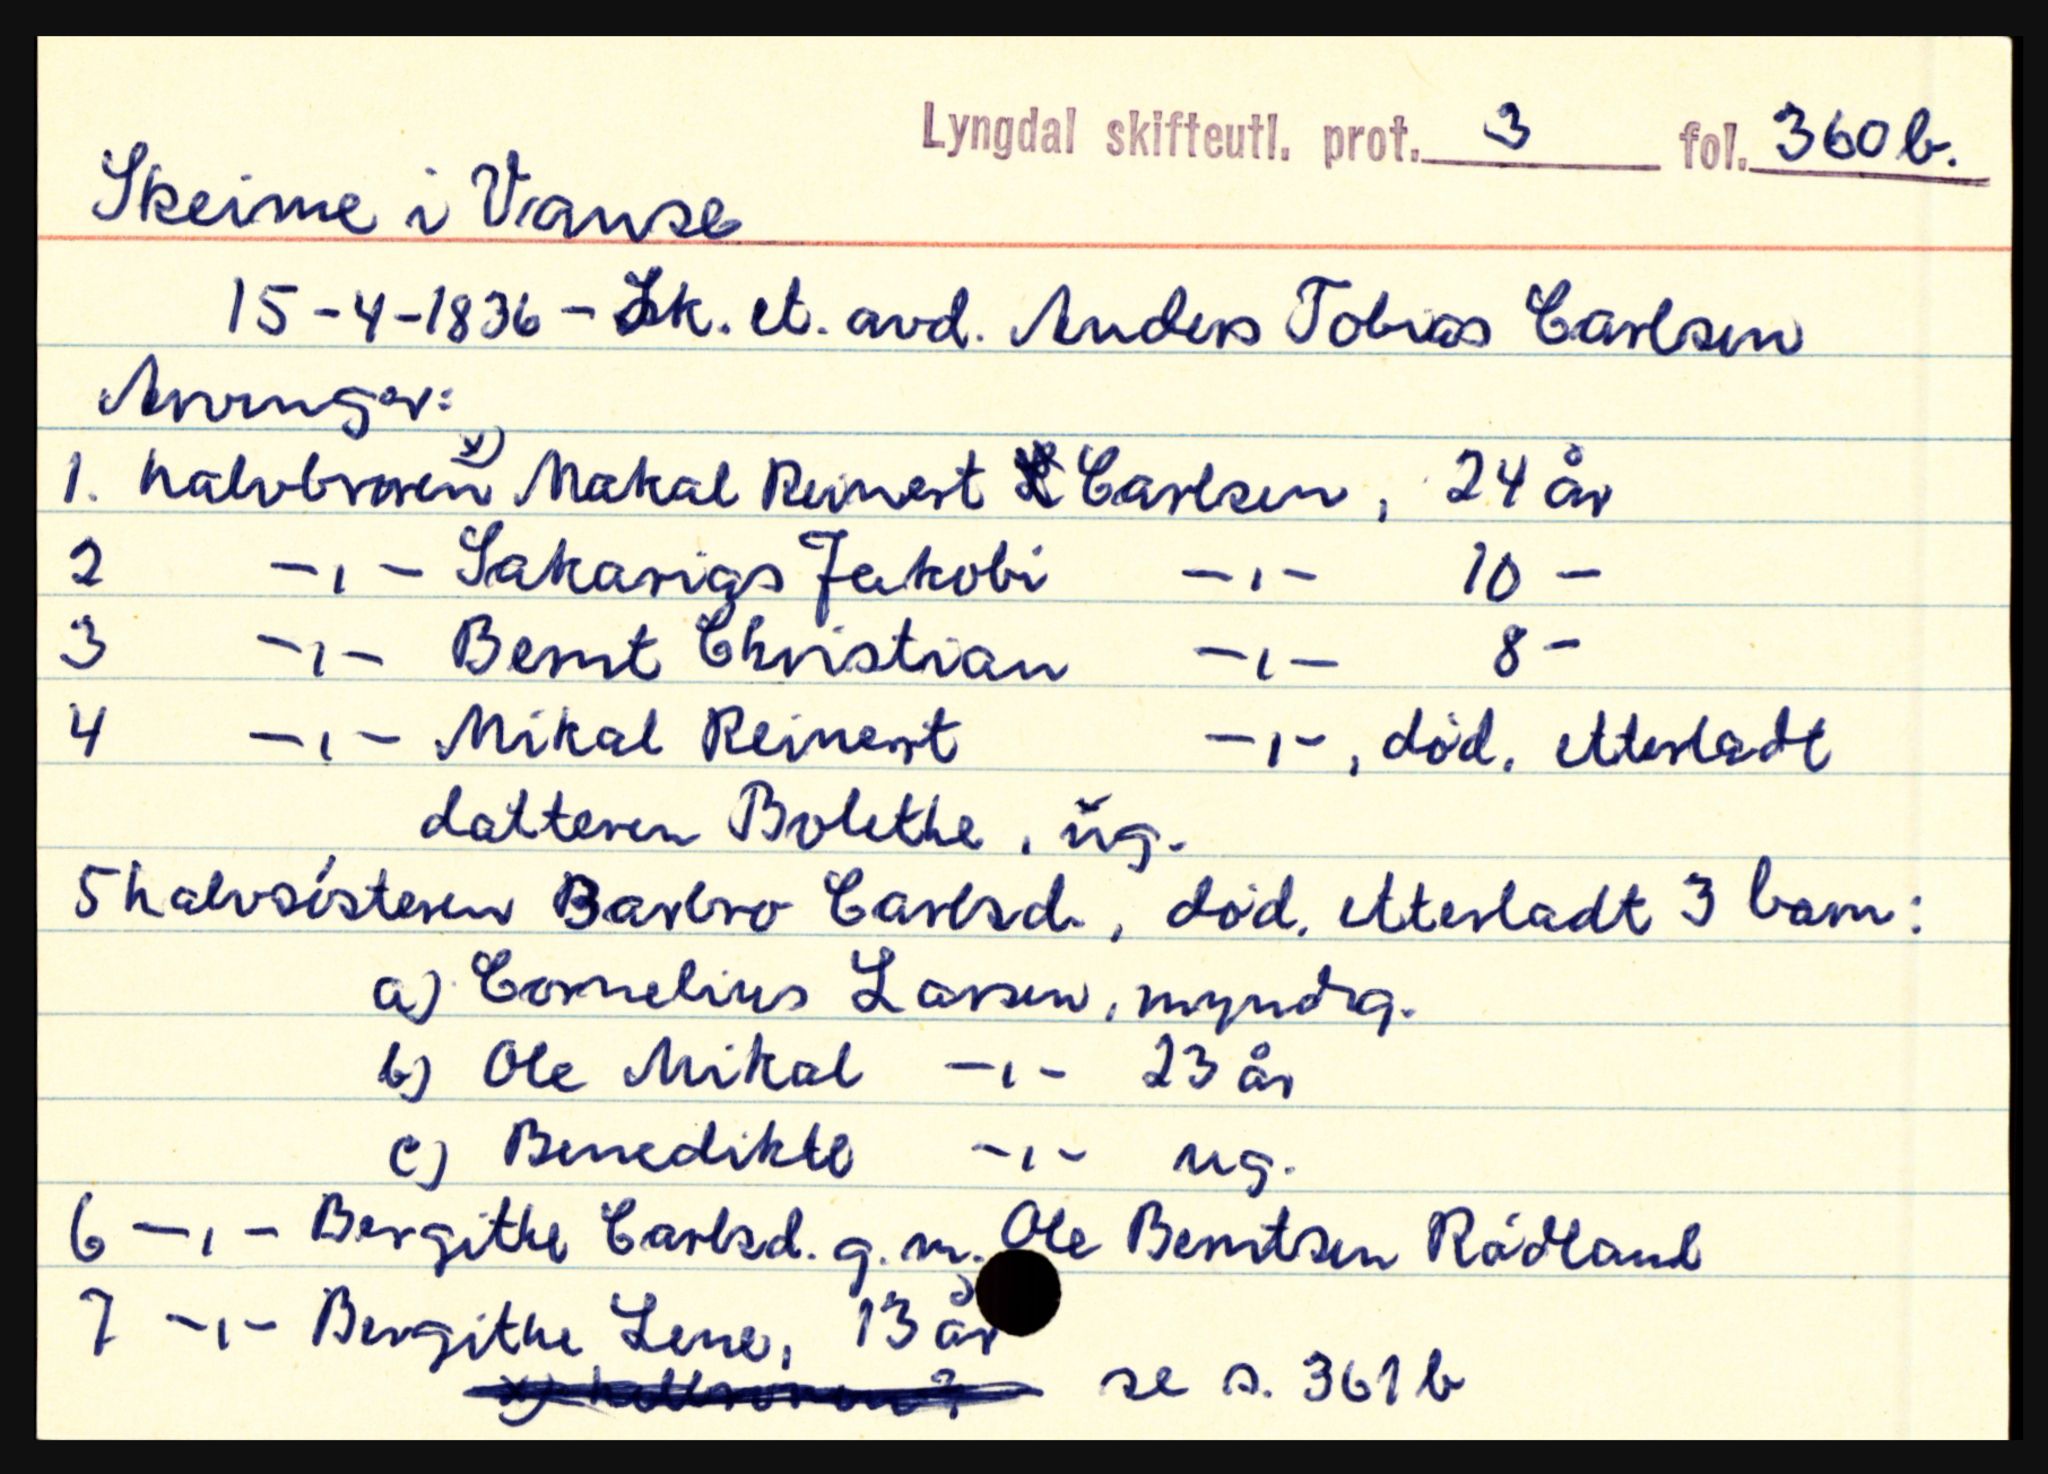 Lyngdal skifteutl. prot. 3 fol. 360 b.
Skeime i Vanse
15-4-1836 - Sk. et. avd. Anders Tobias Carlsen
Arvinger:
1. halvbroren x) Makal Reinert Carlsen, 24 år
2 -,- Sakarias Jakobi -,- 10 -
3 -,- Bernt Christian -,- 8 -
4 -,- Mikal Reinert -,-, død, etterladt
datteren Bolethe, ug.
5 halvsisteren Barbro Carlsd., død, etterladt 3 barn:
a) Cornelius Larsen, myndig.
b) Ole Mikal -,- 23 år
c) Benedikte -,- ug.
6 -,- Bergithe Carlsd. g. m. Ole Berntsen Rødland
7 -,- Bergithe Lene, 13 år
se s. 361 b